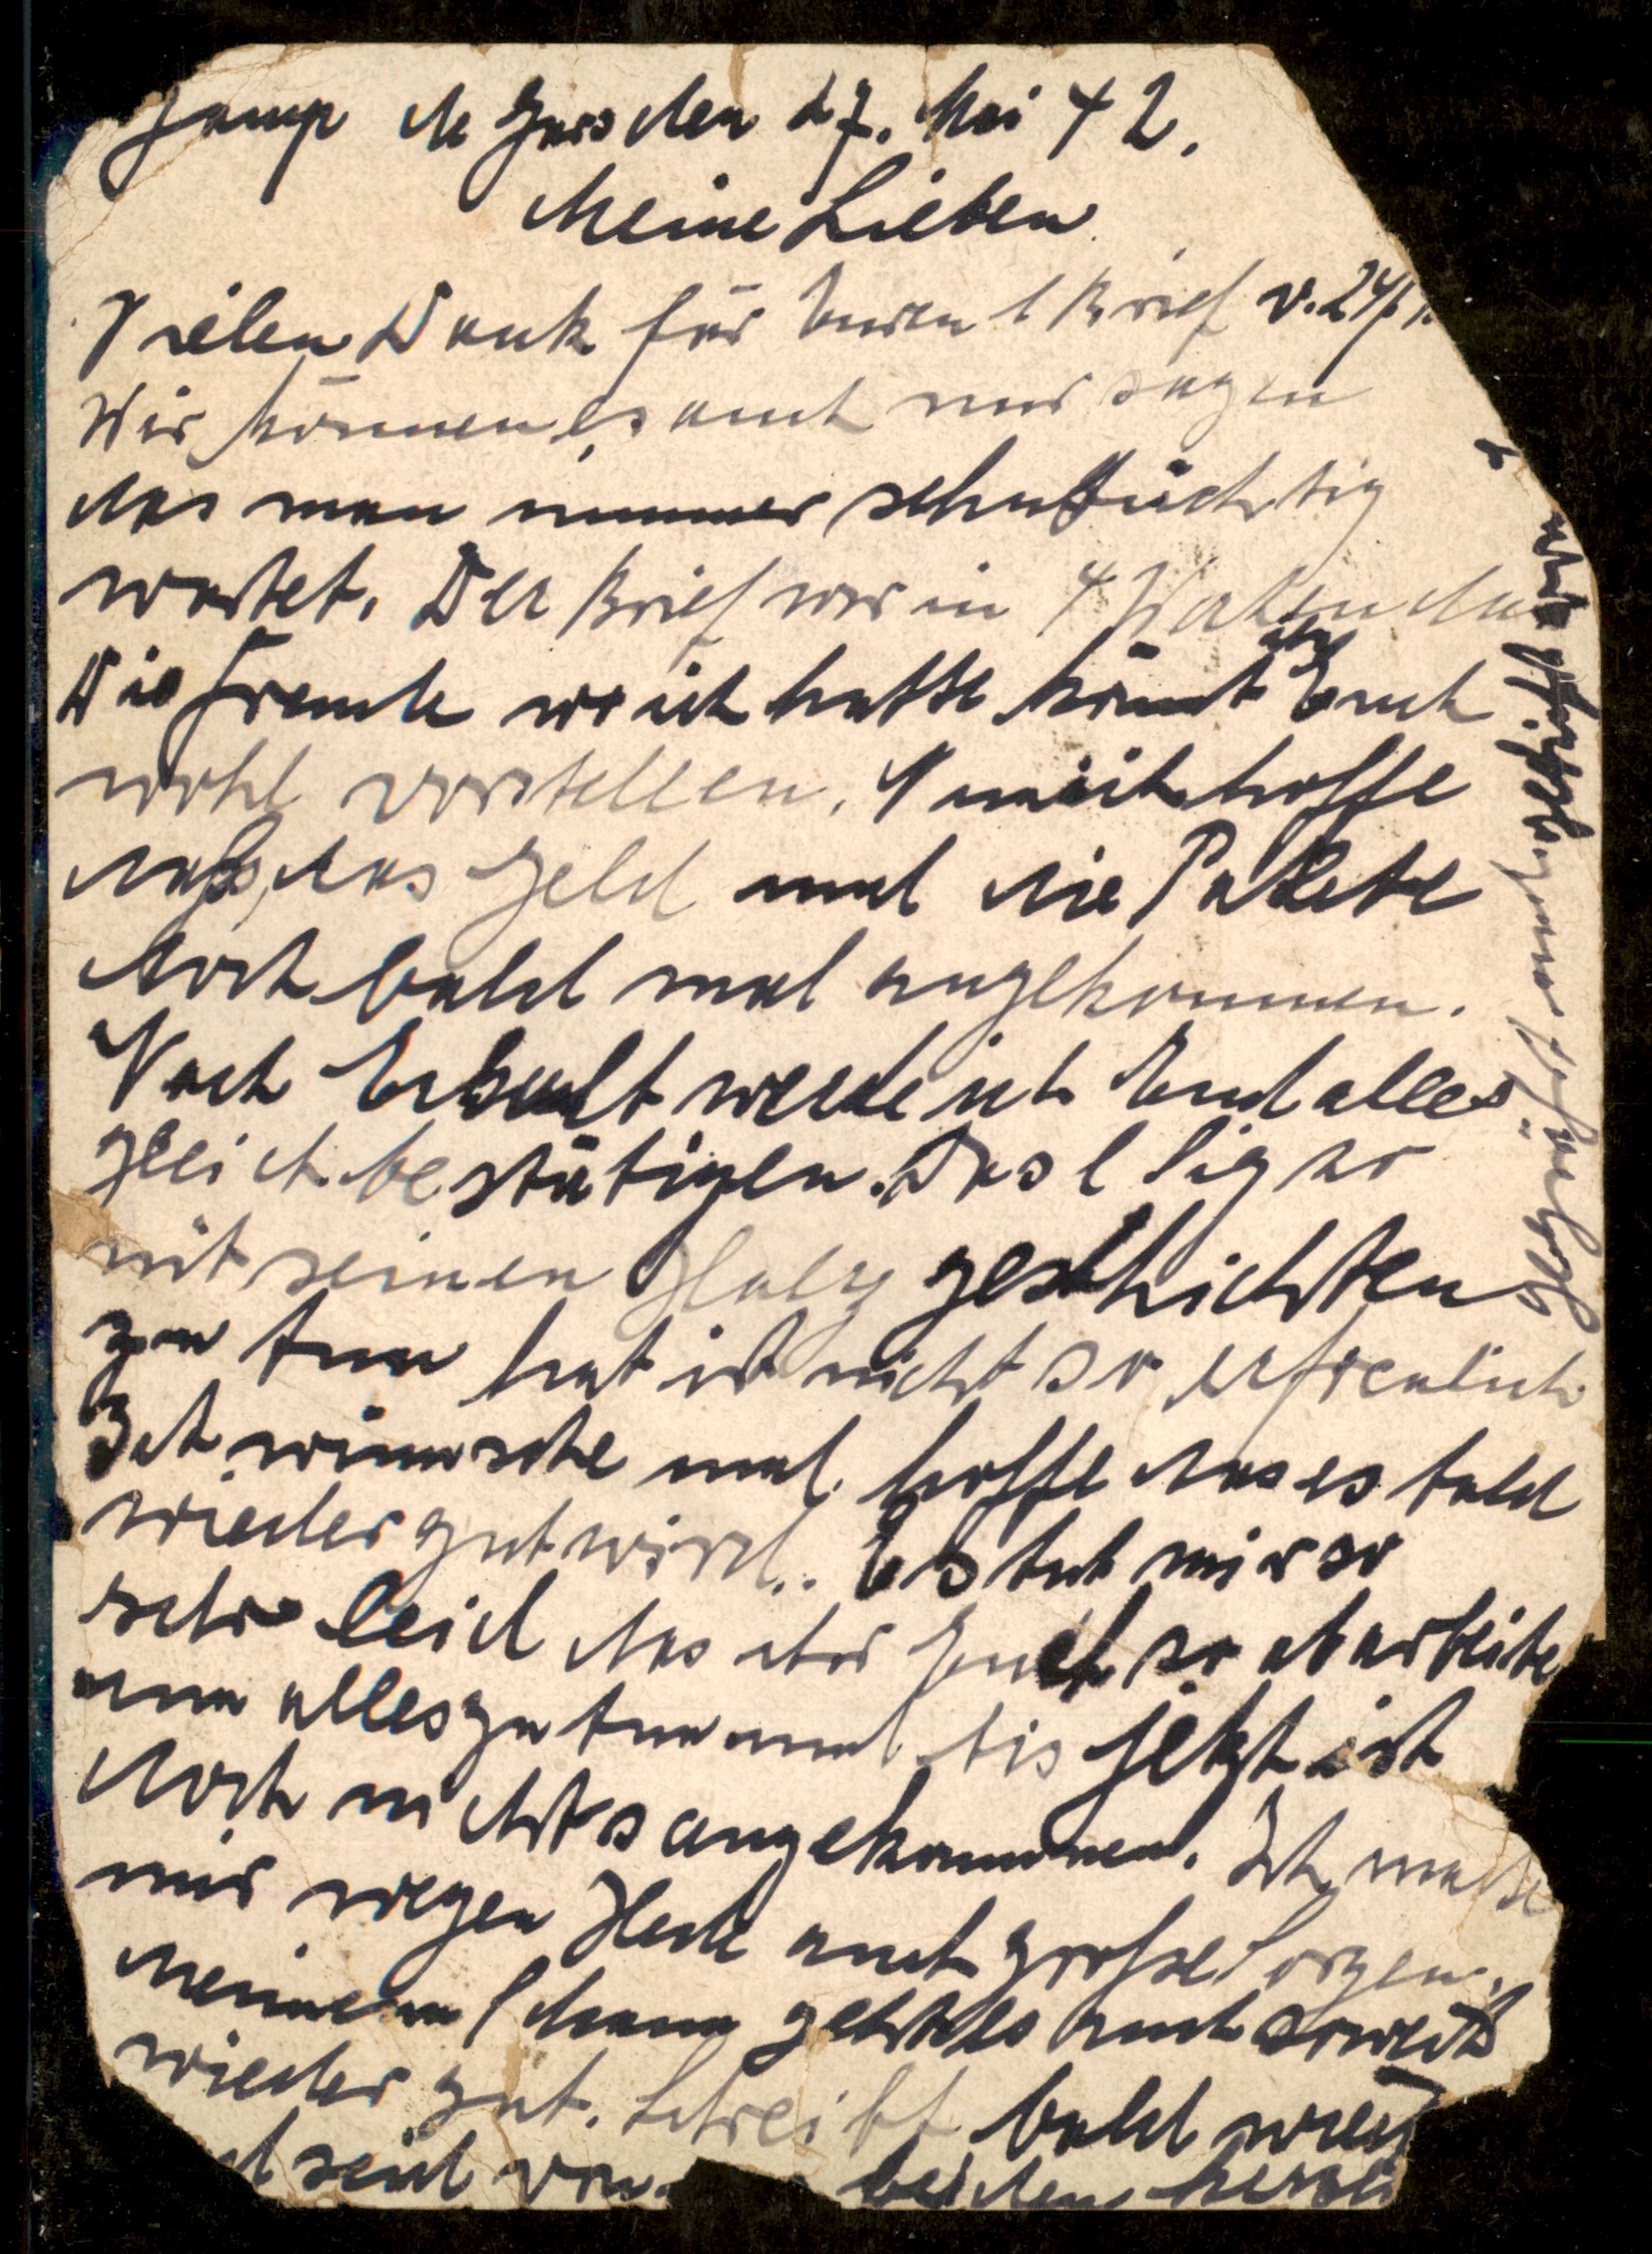 Camp de Gurs den 27. Mai 42.
Meine Lieben
Vielen Dank für Euren l Brief v. 24/
Wir können es auch nur sagen
das man immer sehnsüchtig
wartet. Der Brief war in 4 Wochen da
Die Freude wo ich hatte könnt Euch
wohl vorstellen. Nun ich hoffe
daß, das Geld und die Pakete
doch bald mal angekommen.
Nach Erhalt werde ich Euch alles
gleich bestätigen. Das l Sig so
mit seinen geschichten
zu tun hat ist nicht so erfreulich
Ich wünsche und hoffe das es bald
wieder gut wird.. Es tut mir so
sehr leid das Ihr Euch so abarbeite
um alles zu tun und bis jetzt ist
doch nichts angekommen. Ich mache
mir wegen auch große Sorgen.
meinem geht es auch soweit
wieder gut. Schreibt bald wied
d seid von beiden herzli
gegrüßt und geküßt